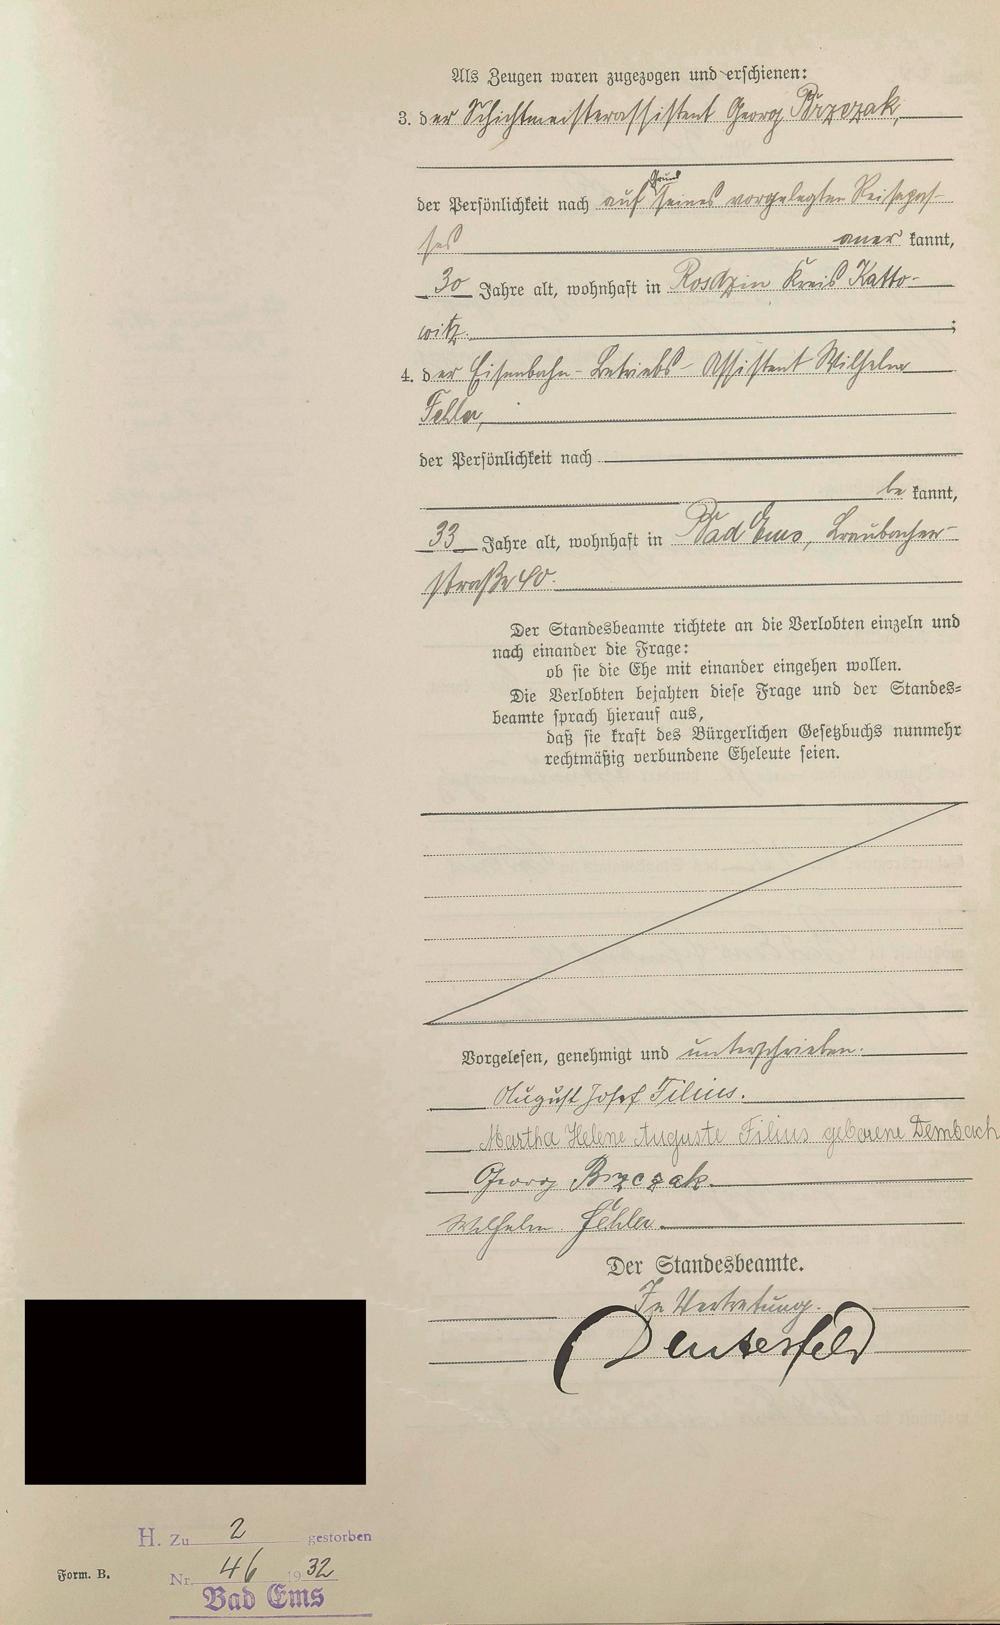 Als Zeugen waren zugezogen und erschienen:
3. der Schichtmeisterassistent Georg Brzczak,
der Persönlichkeit nach auf Grund seines vorgelegten Reisepas-
ses aner kannt,
30 Jahre alt, wohnhaft in Rosdzin Kreis Katto-
witz. ;
4. der Eisenbahn-Betriebs-Assistent Wilhelm
Fehler,
der Persönlichkeit nach
be kannt,
33 Jahre alt, wohnhaft in Bad Ems, Braubacher-
straße 40.
Der Standesbeamte richtete an die Verlobten einzeln und
nach einander die Frage:
ob sie die Ehe mit einander eingehen wollen.
Die Verlobten bejahten diese Frage und der Standes-
beamte sprach hierauf aus,
daß sie kraft des Bürgerlichen Gesetzbuchs nunmehr
rechtmäßig verbundene Eheleute seien.
Vorgelesen, genehmigt und unterschrieben.
August Josef Filius.
Martha Helene Auguste Filius geborene Dembach
Georg Brzczak.
Wilhelm Fehler.
Der Standesbeamte.
In Vertretung.
H. Zu 2 gestorben
Form. B.
Nr. 46 1932
Bad Ems